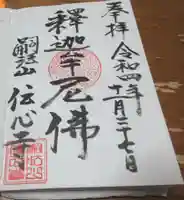 奉拝 令和四年
十一月二十七日
釋迦牟尼佛
伝心寺